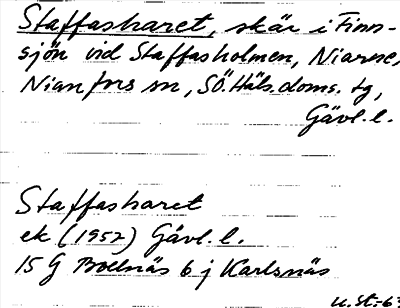 Staffasharet, skär i Finn-
sjön vid Staffasholmen, Niarne,
Nianfors sn, SÖ. Häls. doms. tg,
Gävl. l.
Staffasharet
ek (1952) Gävl. l.
15 G Bollnäs 6 j Karlsnäs
u. st.-63